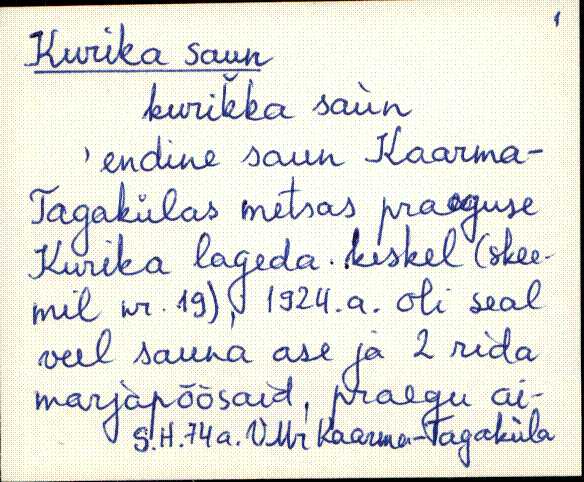 1
Kurika saun
kurik̆ka saùn
'endine saun Kaarma-
Tagakülas metsas praeguse
Kurika lageda keskel (skee-
mil nr. 19), 1924.a. oli seal
veel sauna ase ja 2 rida
marjapõõsaid, praegu ai-
S.H. 74 a. VMr Kaarma-Tagaküla